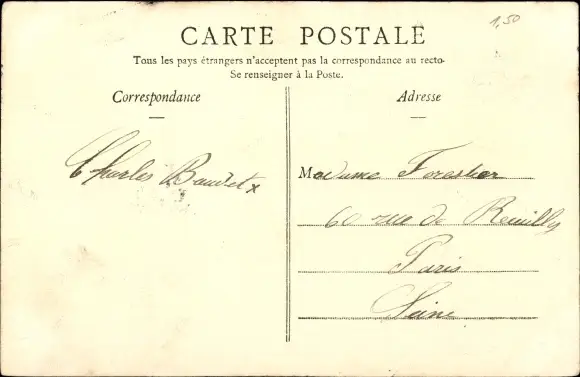 1,50
CARTE POSTALE
Tous les pays étrangers n'acceptent pas la correspondance au recto-
Se renseigner à la Poste.
Correspondance
Adresse
Charles Baudet x
Madame Forestier
60 rue de Reuilly
Paris
Seine